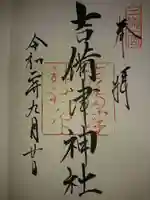 奉拝
吉備津神社
令和二年九月廿日